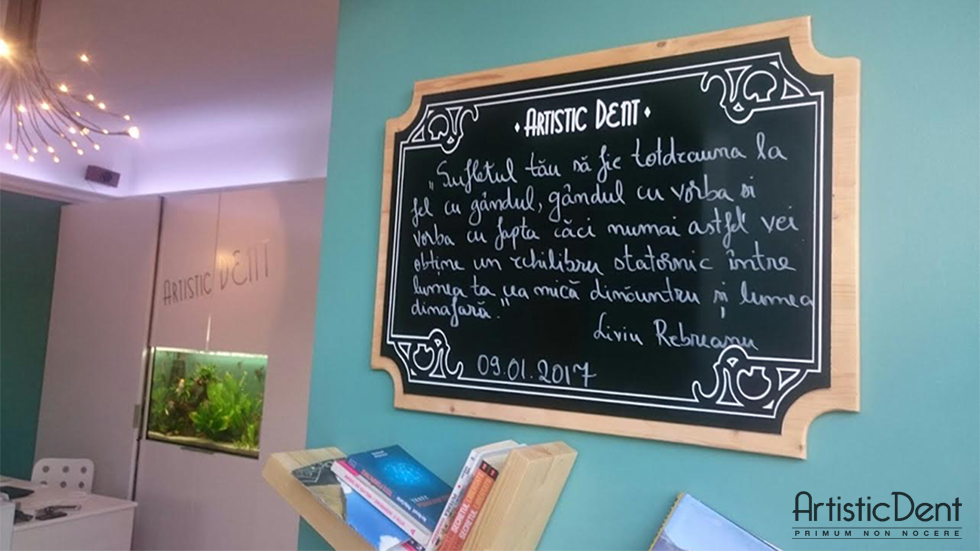 • ARTISTIC DENT •
„Sufletul tău să fie totdeauna la
fel cu gândul, gândul cu vorba si
vorba cu fapta căci numai astfel vei
obține un echilibru statornic între
lumea ta cea mică dinăuntru și lumea
dinafară."
Liviu Rebreanu
09.01.2017
ARTISTIC DENT
ArtisticDent
PRIMUM NON NOCERE